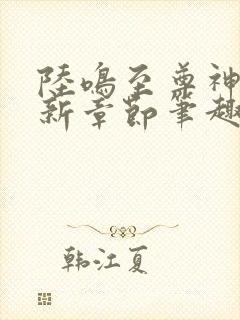 陸鳴至尊神
新章節筆趣
韩江夏